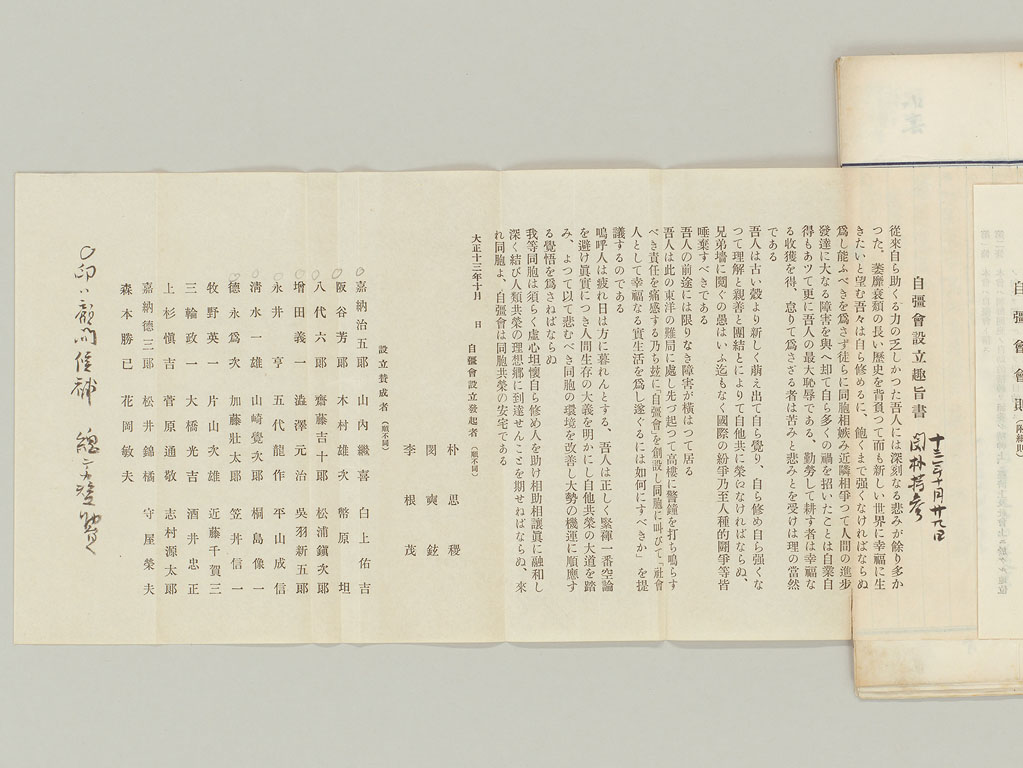 自彊會會則
自彊會設立趣旨書
十三年十月廿九日
閔、朴持参
從來自ら助くる力の乏しかつた吾人には深刻なる悲みが餘り多か
つた。萎靡衰頽の長い歷史を背負つて而も新しい世界に幸福に生
きたいと望む吾々は自ら修めるに、飽くまで强くなければならぬ
爲し能ふべきを爲さず徒らに同胞相嫉み近隣相爭つて人間の進步
發達に大なる障害を與へ却て自ら多くの禍を招いたことは自業自
得もあツて更に吾人の最大恥辱である、勤勞して耕す者は幸福な
る收獲を得、怠りて爲さざる者は苦みと悲みとを受けは理の當然
である
吾人は古い殼より新しく萠え出て自ら覺り、自ら修め自ら强くな
つて理解と親善と團結とによりて自他共に榮へなければならぬ、
兄弟墻に鬩ぐの愚はいふ迄もなく國際の紛爭乃至人種的鬪爭等皆
唾棄すべきである
吾人の前途には限りなき障害が橫はつて居る
吾人は此の東洋の難局に處し先づ起つて高樓に警鐘を打ち鳴らす
べき責任を痛感する乃ち玆に「自彊會」を創設し同胞に叫びて「社會
人として幸福なる實生活を爲し遂ぐるには如何にすべきか」を提
議するのである
嗚呼人は疲れ日は方に暮れんとする、吾人は正しく緊褌一番空論
を避け眞實につき人間生存の大義を明かにし自他共榮の大道を踏
み、よつて以て悲むべき同胞の環境を改善し大勢の機運に順應す
る覺悟を爲さねばならぬ
我等同胞は須らく虛心坦懷自ら修め人を助け相助相讓眞に融和し
深く結び人類共榮の理想鄕に到達せんことを期せねばならぬ、來
れ同胞よ、自彊會は同胞共榮の安宅である
大正十三年十月 日 自彊會設立發起者(順不同)
朴思稷
閔奭鉉
李根茂
設立賛成者(順不同)
○嘉納治五郞 山內繼喜 白上佑吉
○阪谷芳郞 木村雄次 幣原坦
○八代六郞 齋藤吉十郞 松浦鎭次郞
○增田義一 澁澤元治 吳羽新五郞
○永井亨 五代龍作 平山成信
○淸水一雄 山崎覺次郞 桐島像一
○德永爲次 加藤壯太郞 笠井信一
牧野英一 片山次雄 近藤千賀三
三輪政一 大橋光吉 酒井忠正
上杉愼吉 菅原通敬 志村源太郞
嘉納德三郞 松井錦橘 守屋榮夫
森本勝巳 花岡敏夫
○印ハ顧問候補